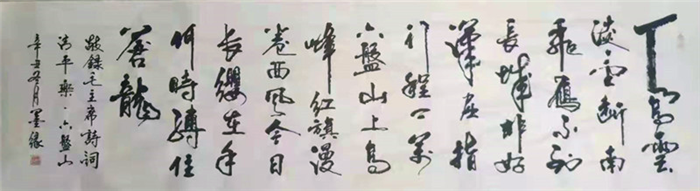 天高雲
淡望断南
飛雁不到
長城非好
漢屈指
行程二萬
六盤山上高
峰紅旗漫
卷西風今日
长纓在手
何時縛住
蒼龍
敬錄毛主席詩詞
清平樂·六盤山
辛丑冬月墨缘